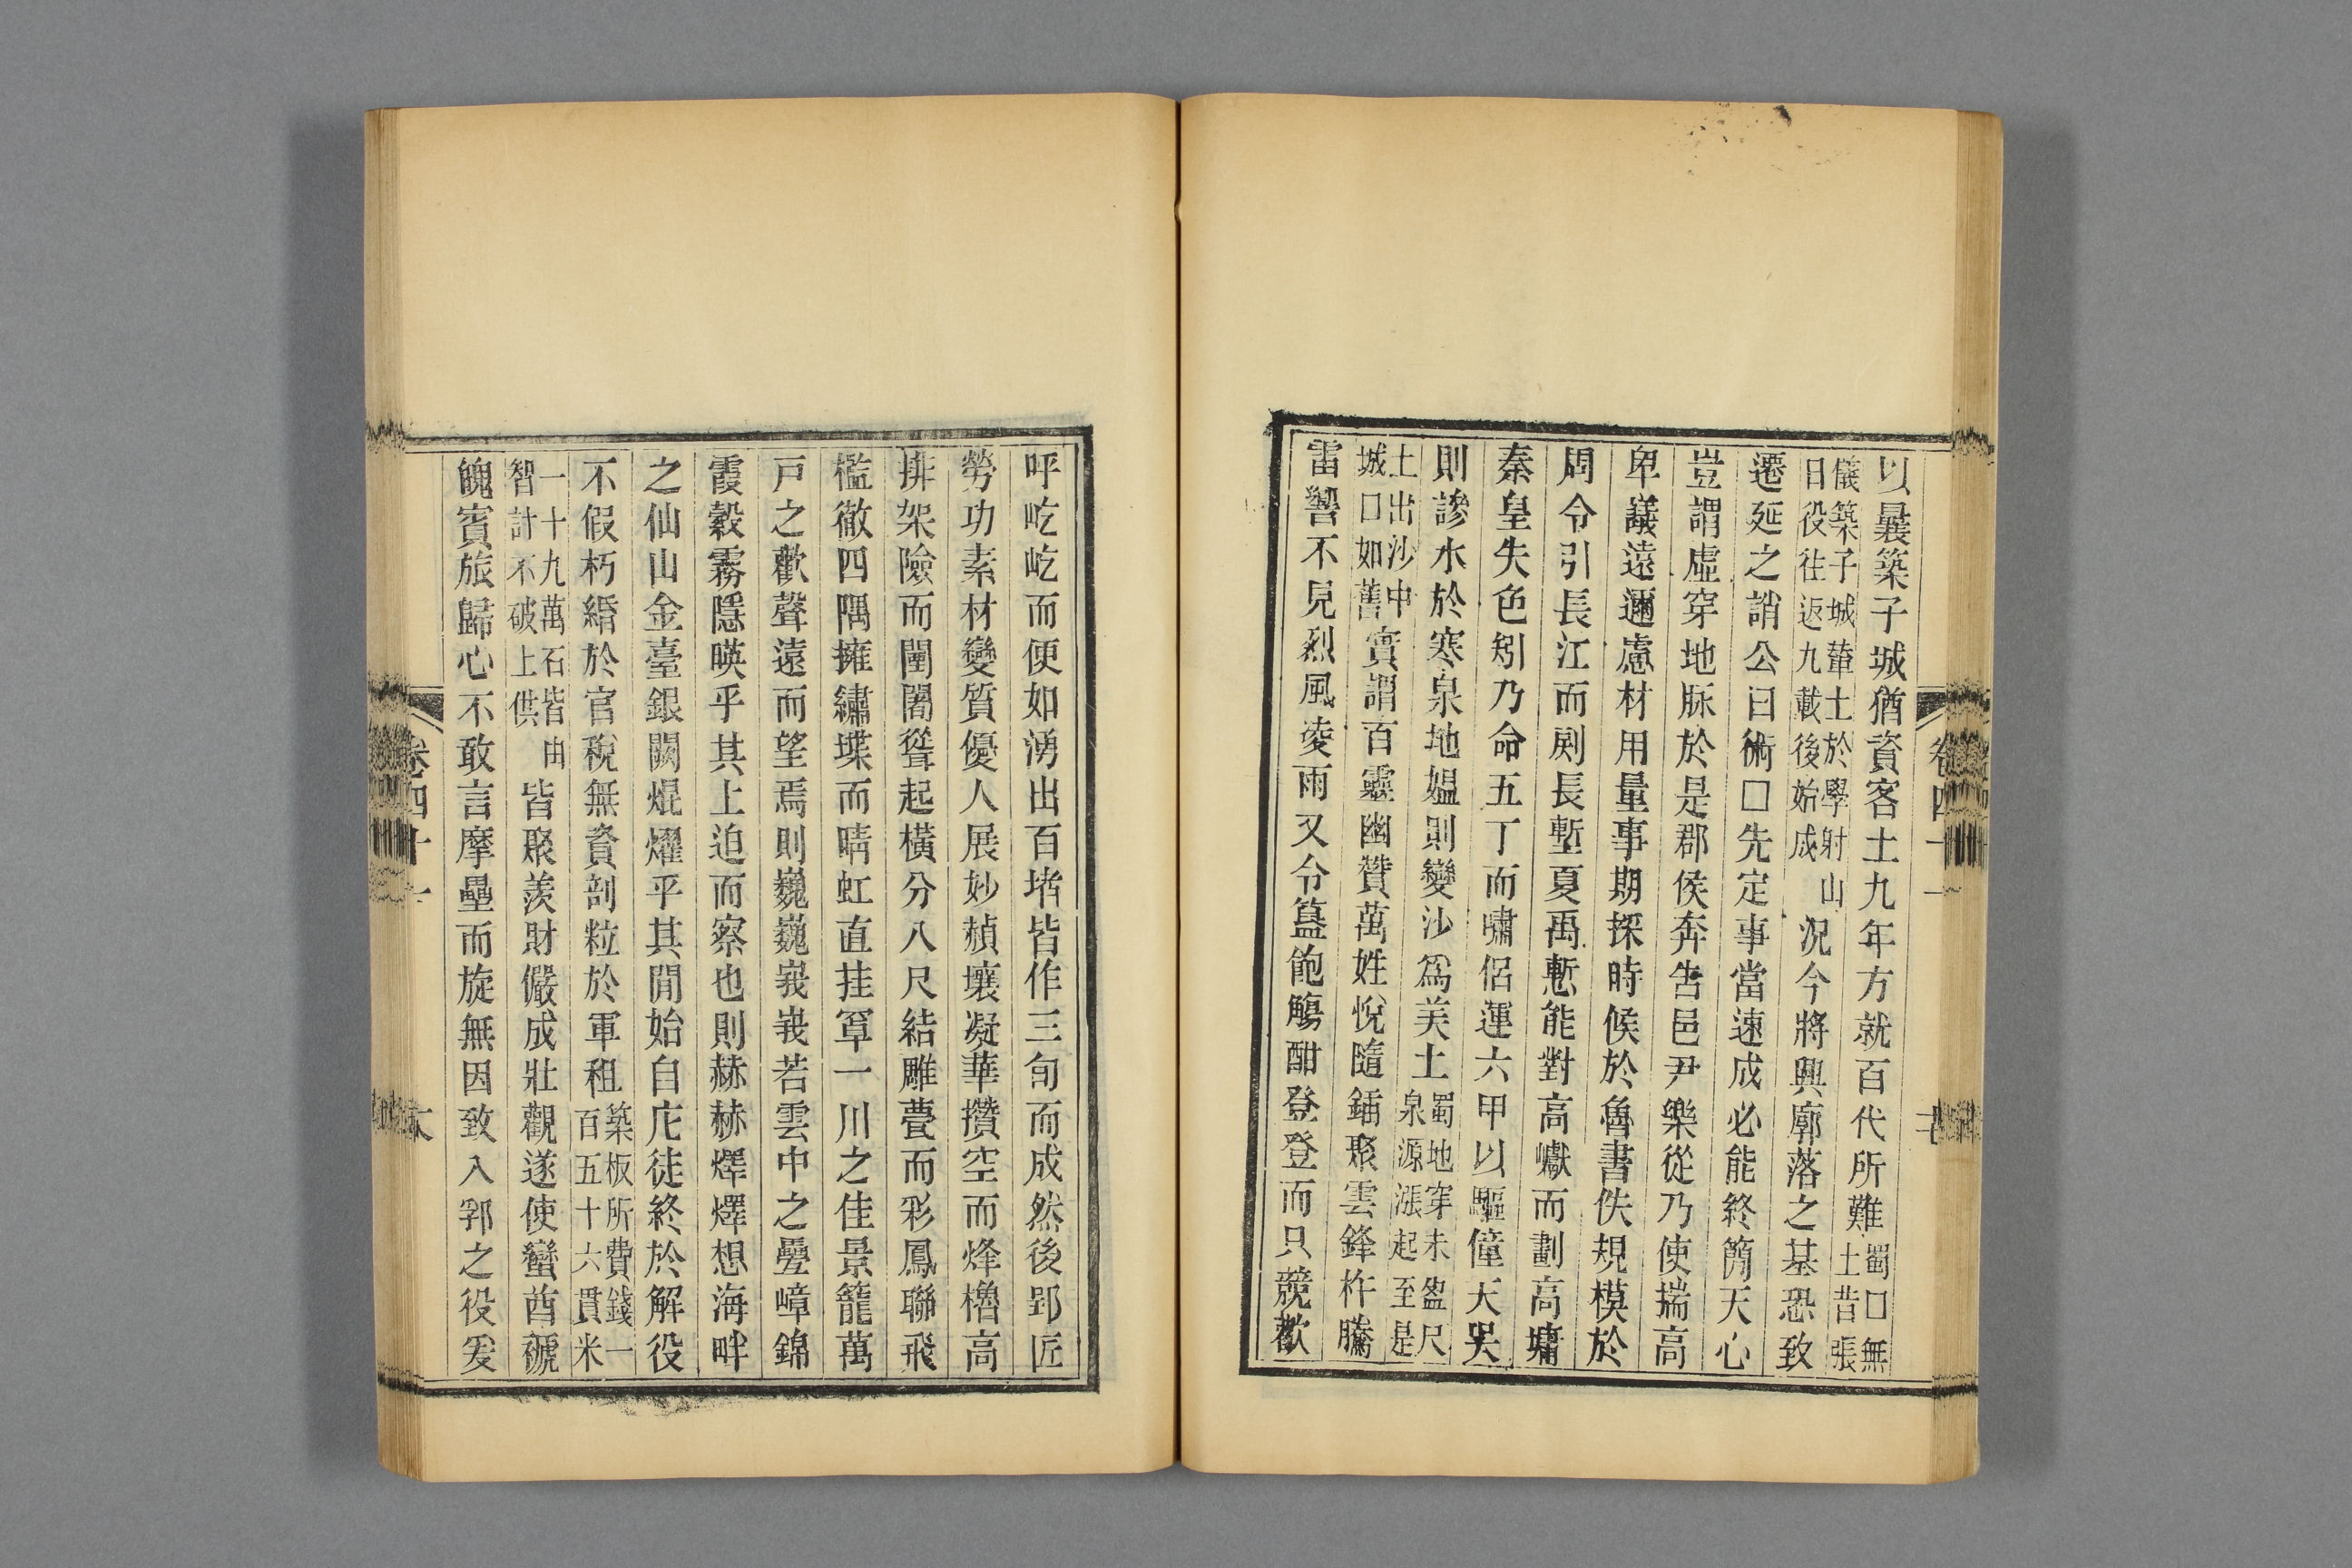 以曩築子城猶資客土九年方就百代所難蜀口無土昔張
儀築子城輦土於學射山日役往返九載後始成況今將興廓落之基恐致
遷延之誚公曰術口先定事當速成必能終簡天心
豈謂虛穿地脉於是郡侯奔吿邑尹樂從乃使揣高
卑議遠邇慮材用量事期探時候於魯書佚規模於
周令引長江而剧長塹夏禹慙能對高巘而劃高墉
秦皇失色矧乃命五丁而嘯侶運六甲以驅僮天吳
則謲水於寒泉地媼則變沙爲美土蜀地穿未盈尺泉源漲起至是
土出沙中城口如舊實謂百靈幽贊萬姓悅隨鍤聚雲鋒杵騰
雷響不見烈風凌雨又令簋飽觴酣登登而只競歡
卷四十一
呼屹屹而便如湧出百堵皆作三旬而成然後郢匠
勞功素材變質優人展妙赬壤凝華攢空而烽櫓高
排架險而闉闍聳起橫分八尺結雕甍而彩鳳聯飛
檻徹四隅擁繡堞而晴虹直挂罩一川之佳景籠萬
戸之歡聲遠而望焉則巍巍峩峩若雲中之疊嶂錦
霞縠霧隱暎乎其上迫而察也則赫赫燡燡想海畔
之仙山金臺銀闕焜燿乎其閒始自庀徒終於解役
不假朽緡於官稅無資剖粒於軍租築板所費錢一百五十六貫米
一十九萬石皆由智計不破上供皆聚羨財儼成壯觀遂使蠻酋褫
魄賓旅歸心不敢言摩壘而旋無因致入郛之役爰
卷四十一